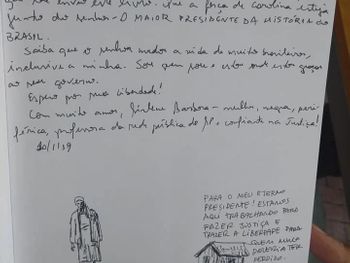 que a força de Carolina esteja
junto do senhor - O MAIOR PRESIDENTE DA HISTÓRIA DO
BRASIL.
Saiba que o senhor mudou a vida de muitos brasileiros,
inclusive a minha. Sou quem sou e estou onde estou graças
ao seu governo.
Espero por sua liberdade!
Com muito amor, Barbosa - mulher, negra, peri
férica, professora da rede pública de SP e confiante na Justiça!
20/1/19
PARA O MEU ETERNO
PRESIDENTE! ESTAMOS
AQUI TRABALHANDO PARA
FAZER JUSTIÇA E
TRAZER A LIBERDADE PARA
QUEM NUNCA
DEVERIA TER
PERDIDO.